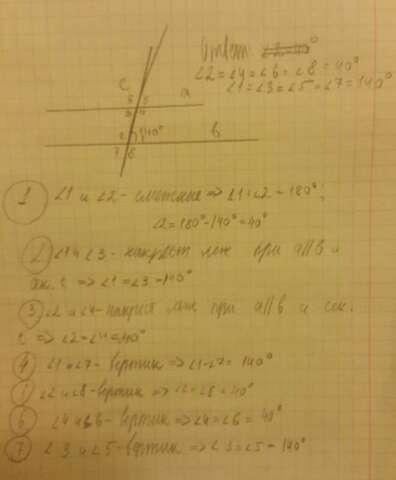 Ответ
∠2=∠4=∠6=∠8=40°
∠1=∠3=∠5=∠7=140°
c
a
6 5
3 4
2 1 140°
b
7 8
1 ∠1 и ∠2 - смежные ⇒ ∠1+∠2=180°;
∠2=180°-140°=40°
2 ∠1 и ∠3 - накрест леж при a||b и
сек. c ⇒ ∠1=∠3=140°
3 ∠2 и ∠4 - накрест леж при a||b и сек.
c ⇒ ∠2=∠4=40°
4 ∠1 и ∠7 - вертик ⇒ ∠1=∠7=140°
∠2 и ∠8 - вертик ⇒ ∠2=∠8=40°
6 ∠4 и ∠6 - вертик ⇒ ∠4=∠6=40°
7 ∠3 и ∠5 - вертик ⇒ ∠3=∠5=140°